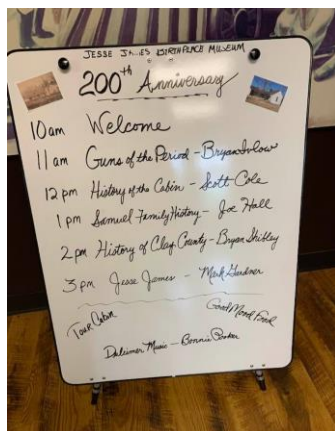 JESSE JAMES BIRTHPLACE MUSEUM
200th Anniversary
10am Welcome
11am Guns of the Period - Bryan Ivlow
12pm History of the Cabin - Scott Cole
1pm Samuel Family History - Joe Hall
2pm History of Clay County - Bryan Shibley
3pm Jesse James - Mark Gardner
Tour Cabin
Good Mood Food
Dulcimer Music - Bonnie